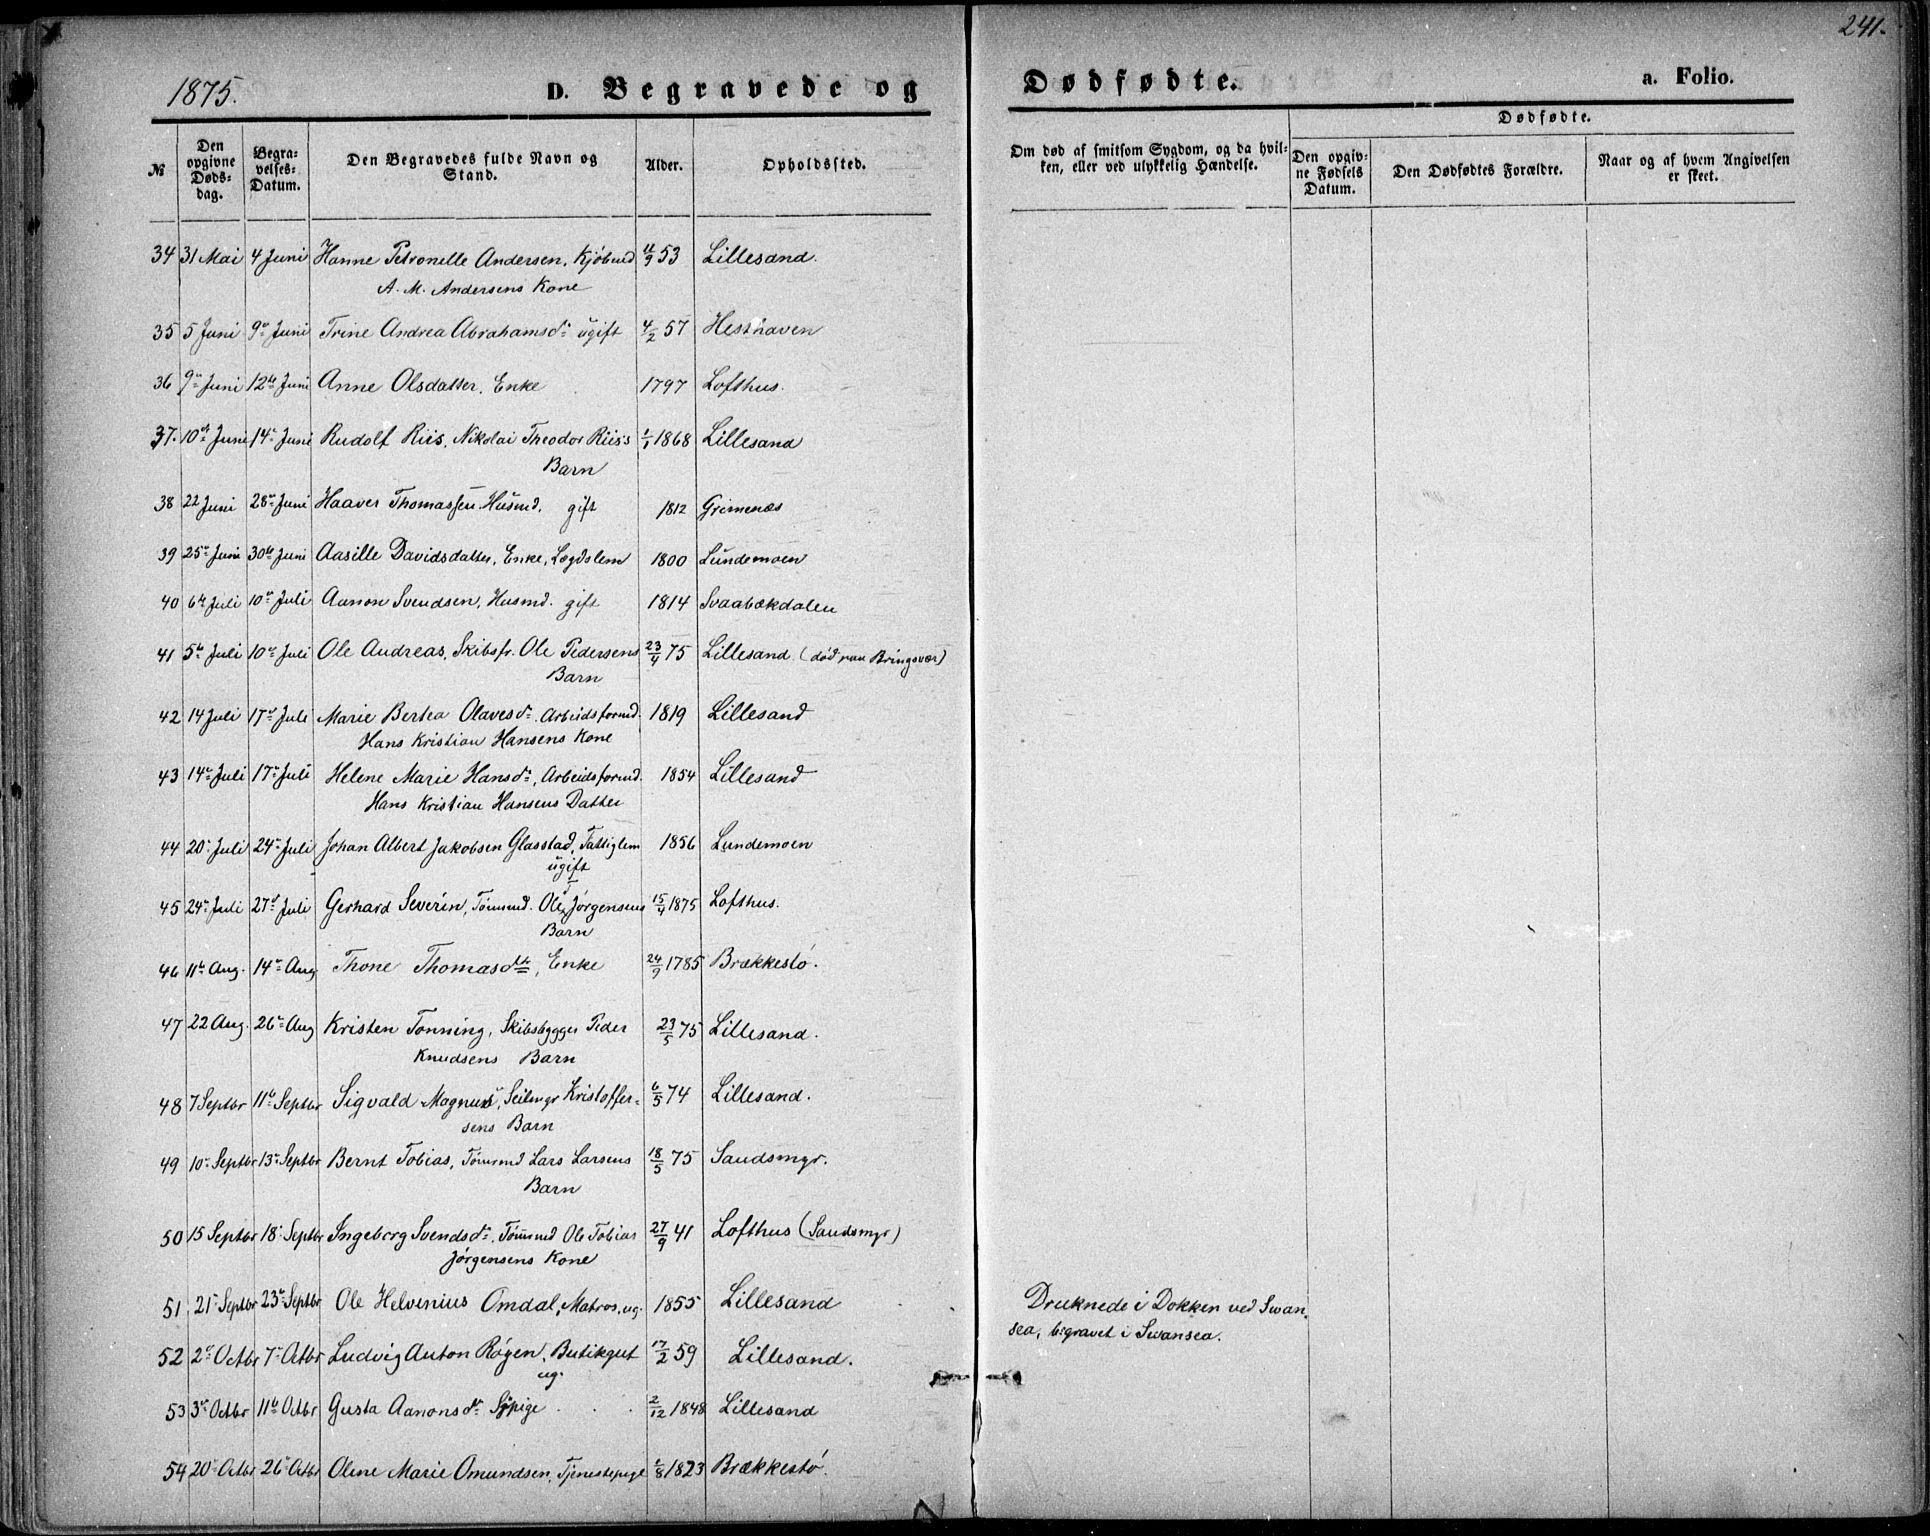 241.
1875.
D. Begravede og Dødfødte.
a. Folio.
№
Den opgivne Døds-dag.
Begra-velses-Datum.
Den Begravedes fulde Navn og Stand.
Alder.
Opholdssted.
Om død af smitsom Sygdom, og da hvil-ken, eller ved ulykkelig Hændelse.
Dødfødte.
Den opgiv-ne Fødsels Datum.
Den Dødfødtes Forældre.
Naar og af hvem Angivelsen er skeet.
34 31 Mai 4 Juni Hanne Petronelle Andersen, Kjøbmd 11/9 53 Lillesand.
A. M. Andersens Kone
35 5 Juni 9de Juni Trine Andrea Abrahamsdr ugift 4/2 57 Hesthaven
36 9de Juni 12te Juni Anne Olsdatter, Enke 1797 Lofthus.
37. 10de Juni 14de Juni Rudolf Riis, Nikolai Theodor Riis's 1/1 1868 Lillesand
Barn
38 22 Juni 28de Juni Haaver Thomassen Husmd. gift 1812 Grimenæs
39 25de Juni 30te Juni Aasille Davidsdatter, Enke, Lægdslem 1800 Lundemoen
40 6te Juli 10de Juli Aanon Svendsen, Husmd. gift 1814 Svaabækdalen
41 5te Juli 10de Juli Ole Andreas, Skibsfr. Ole Pedersens 23/4 75 Lillesand (død paa Bringsvær)
Barn
42 14 Juli 17de Juli Marie Bertea Olavesdr. Arbeidsformd. 1819 Lillesand
Hans Kristian Hansens Kone
43 14de Juli 17de Juli Helene Marie Hansdr, Arbeidsformd. 1854 Lillesand
Hans Kristian Hansens Datter
44 20de Juli 24de Juli Johan Albert Jakobsen Glasstad, Fattiglem 1856 Lundemoen
ugift
45 24de Juli 27de Juli Gerhard Severin, Tømmd. Ole T Jørgensens 15/4 1875 Lofthus.
Barn
46 11te Aug. 14de Aug Thone Thomasdtr, Enke 24/9 1785 Brækkestø.
47 22 Aug. 26de Aug Kristen Tønning, Skibsbygger Peder 23/5 75 Lillesand.
Knudsens Barn
48 7 Septbr 11te Septbr Sigvald Magnus, Seilmgr Kristoffer- 6/5 74 Lillesand.
sens Barn
49 10de Septbr 13de Septbr Bernt Tobias, Tømmd Lars Larsens 18/5 75 Sandsmyr.
Barn
50 15 Septbr 18de Septbr Ingeborg Svendsdr, Tømmd Ole Tobias 27/9 41 Lofthus (Sandsmyr)
Jørgensens Kone
51 21de Septbr 23de Septbr Ole Helvenius Omdal, Matros, ug. 1855 Lillesand Druknede i Dokken ved Swan-
sea, begravet i Swansea.
52 2den Octbr 7de Octbr Ludvig Anton Røgen, Butikgut 17/2 59 Lillesand.
ug.
53 3de Octbr 11te Octbr Gusta Aanonsdr Sypige 2/12 1848 Lillesand
54 20de Octbr 26de Octbr Oline Marie Omundsen, Tjenestepige 1/8 1823 Brækkestø.